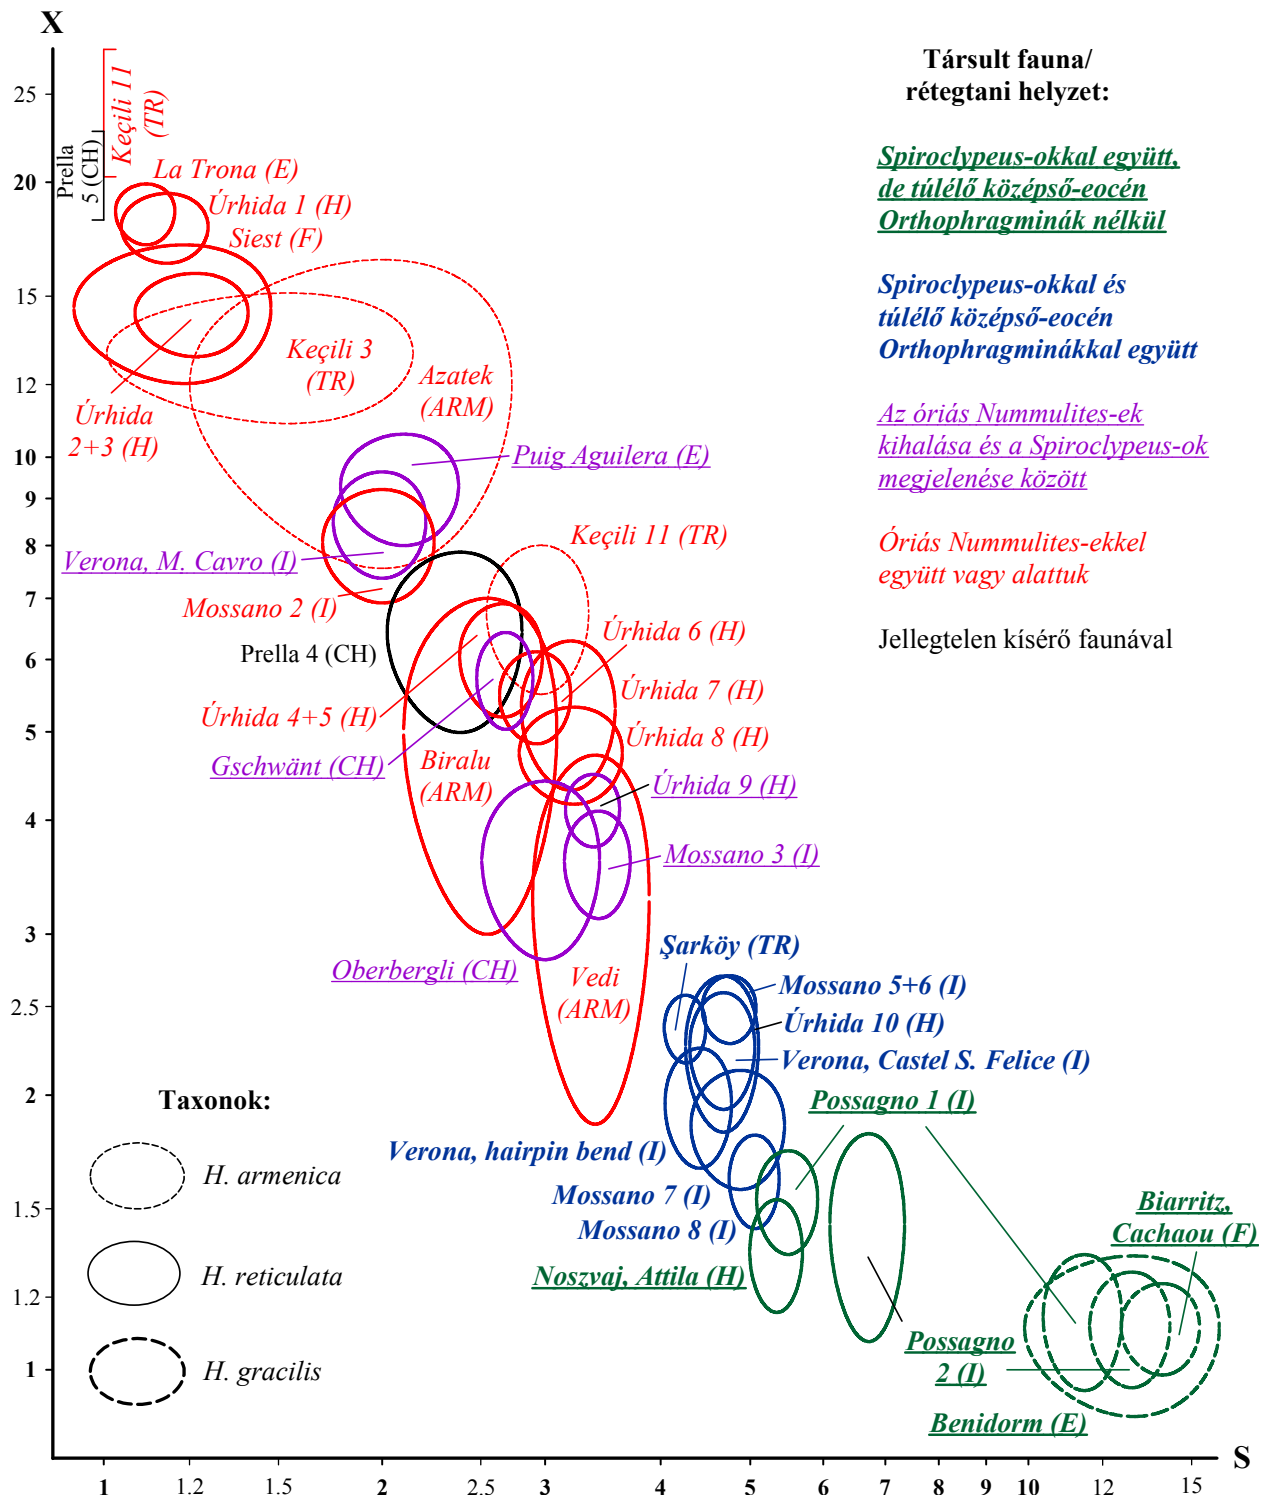 X
25
20
15
12
10
9
8
7
6
5
4
3
2.5
2
1.5
1.2
1
Keçili 11
(TR)
Prella
5 (CH)
La Trona (E)
Úrhida 1 (H)
Siest (F)
Keçili 3
(TR)
Azatek
(ARM)
Úrhida
2+3 (H)
Puig Aguilera (E)
Verona, M. Cavro (I)
Mossano 2 (I)
Keçili 11 (TR)
Prella 4 (CH)
Úrhida 6 (H)
Úrhida 4+5 (H)
Úrhida 7 (H)
Gschwänt (CH)
Biralu
(ARM)
Úrhida 8 (H)
Úrhida 9 (H)
Mossano 3 (I)
Oberbergli (CH)
Vedi
(ARM)
Şarköy (TR)
Mossano 5+6 (I)
Úrhida 10 (H)
Verona, Castel S. Felice (I)
Possagno 1 (I)
Verona, hairpin bend (I)
Mossano 7 (I)
Mossano 8 (I)
Noszvaj, Attila (H)
Biarritz,
Cachaou (F)
Possagno
2 (I)
Benidorm (E)
Társult fauna/
rétegtani helyzet:
Spiroclypeus-okkal együtt,
de túlélő középső-eocén
Orthophragminák nélkül
Spiroclypeus-okkal és
túlélő középső-eocén
Orthophragminákkal együtt
Az óriás Nummulites-ek
kihalása és a Spiroclypeus-ok
megjelenése között
Óriás Nummulites-ekkel
együtt vagy alattuk
Jellegtelen kísérő faunával
Taxonok:
H. armenica
H. reticulata
H. gracilis
1 1.2 1.5 2 2.5 3 4 5 6 7 8 9 10 12 15
S